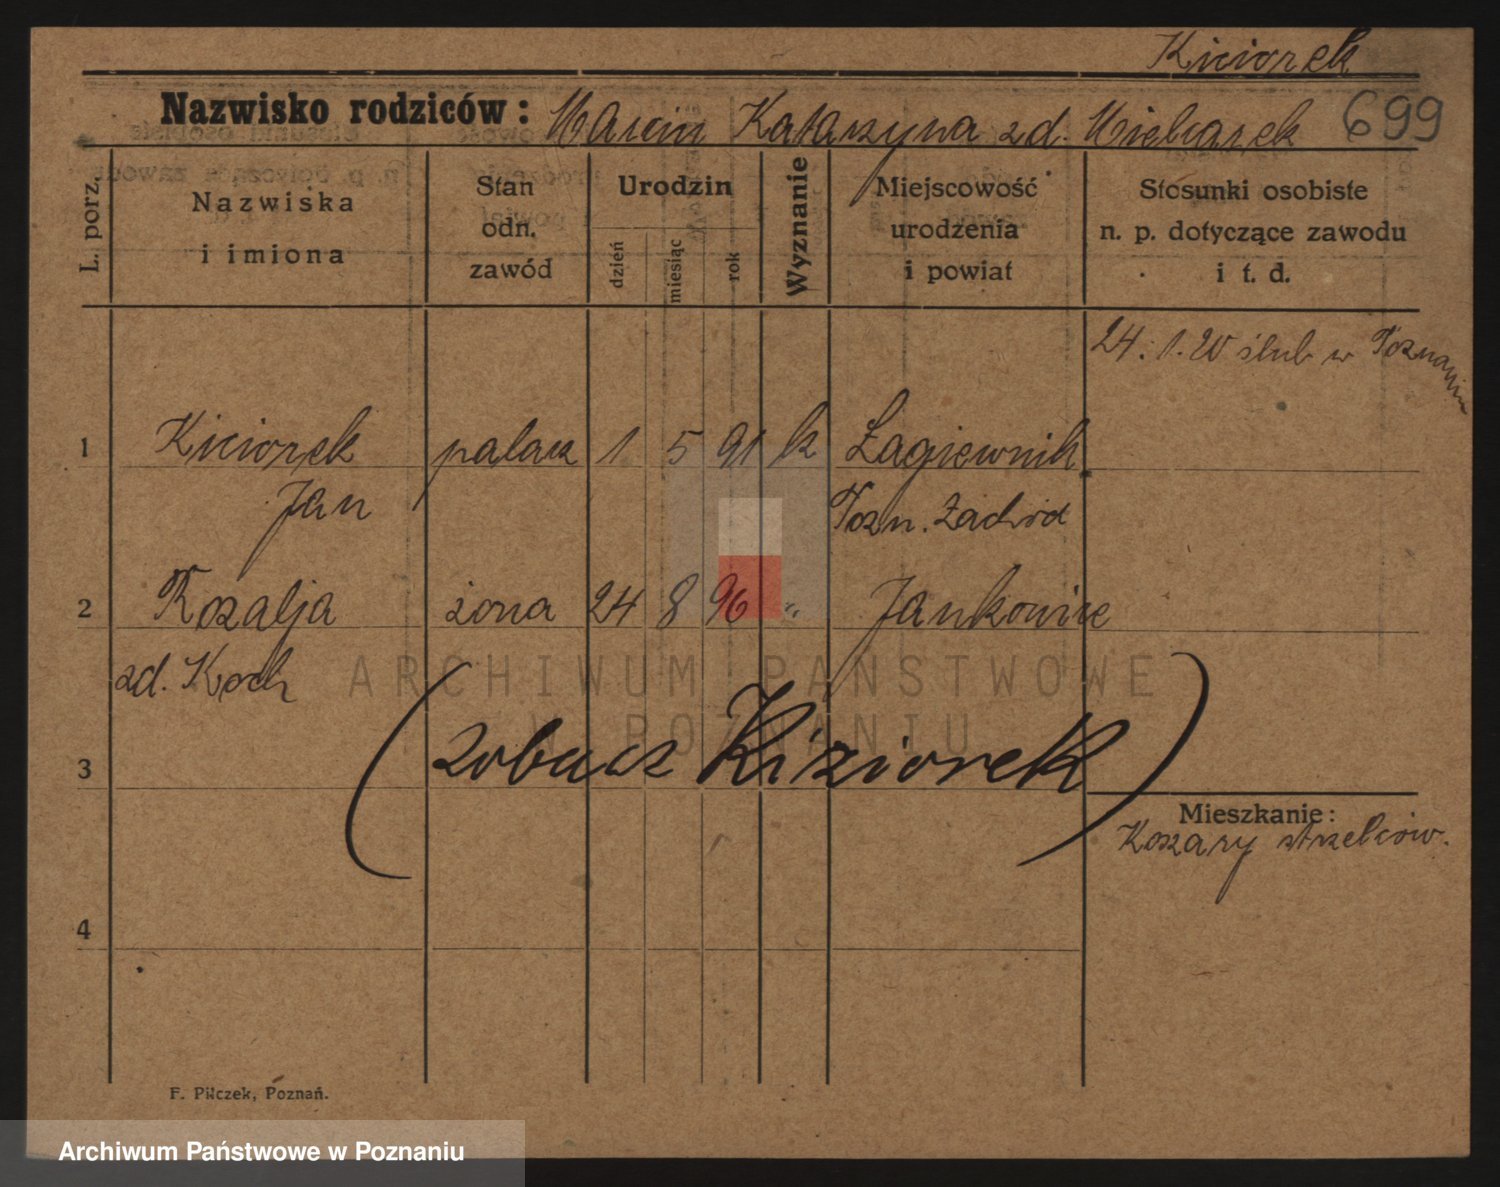 Kiciorek
Nazwisko rodziców: Marcin Katarzyna zd. Mielcarek 699
L. porz.
Nazwiska
i imiona
Stan
odn.
zawód
Urodzin
dzień
miesiąc
rok
Wyznanie
Miejscowość
urodzenia
i powiat
Stosunki osobiste
n. p. dotyczące zawodu
i t. d.
24. 1. 20 ślub w Poznaniu
1 Kiciorek palacz 1 5 91 k Łagiewnik
Jan Pozn. Zachód
2 Rozalja żona 24 8 96 " Jankowice
zd. Koch
ARCHIWUM PAŃSTWOWE
W POZNANIU
3 (zobacz Kiziorek)
Mieszkanie:
Koszary strzelców.
4
F. Pilczek, Poznań.
Archiwum Państwowe w Poznaniu